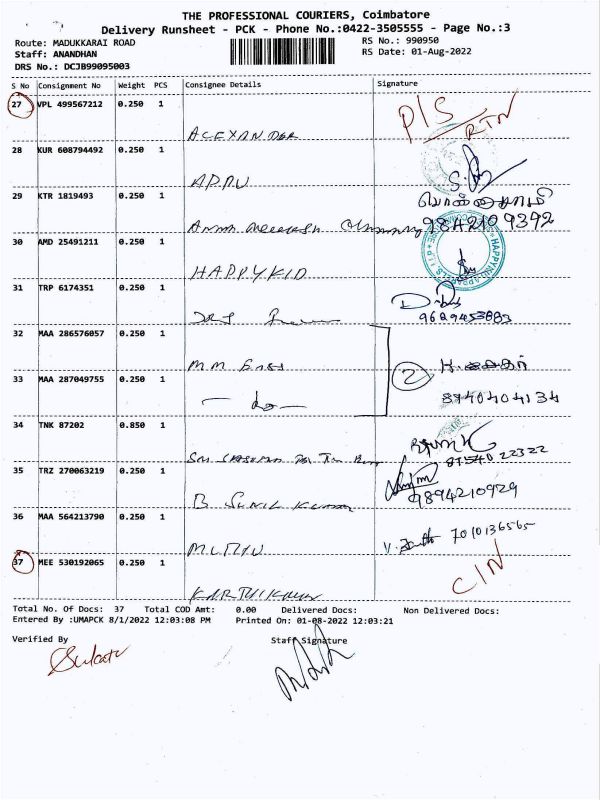 THE PROFESSIONAL COURIERS, Coimbatore
Delivery Runsheet - PCK - Phone No.:0422-3505555 - Page No.:3
Route: MADUKKARAI ROAD
RS No.: 990950
Staff: ANANDHAN
RS Date: 01-Aug-2022
DRS No.: DCJB99095003
S No Consignment No Weight PCS Consignee Details Signature
27 VPL 499567212 0.250 1
P/S RTN
ALEXANDER
28 KUR 608794492 0.250 1
APPU
29 KTR 1819493 0.250 1
9842109392
30 AMD 25491211 0.250 1
HAPPYKID
31 TRP 6174351 0.250 1
9629453883
32 MAA 286576057 0.250 1
M.M
33 MAA 287049755 0.250 1
2
8740404134
34 TNK 87202 0.850 1
8754022322
35 TRZ 270063219 0.250 1
9894210929
B SUNIL KUMAR
36 MAA 564213790 0.250 1
7010136565
37 MEE 530192065 0.250 1
C/N
KARTHIKEYAN
Total No. Of Docs: 37 Total COD Amt: 0.00 Delivered Docs: Non Delivered Docs:
Entered By :UMAPCK 8/1/2022 12:03:08 PM Printed On: 01-08-2022 12:03:21
Verified By Staff Signature